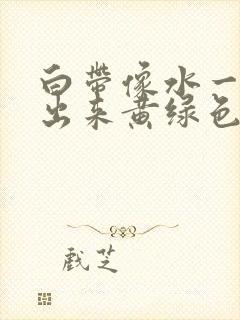 白带像水一
出来黄绿色
戲芝